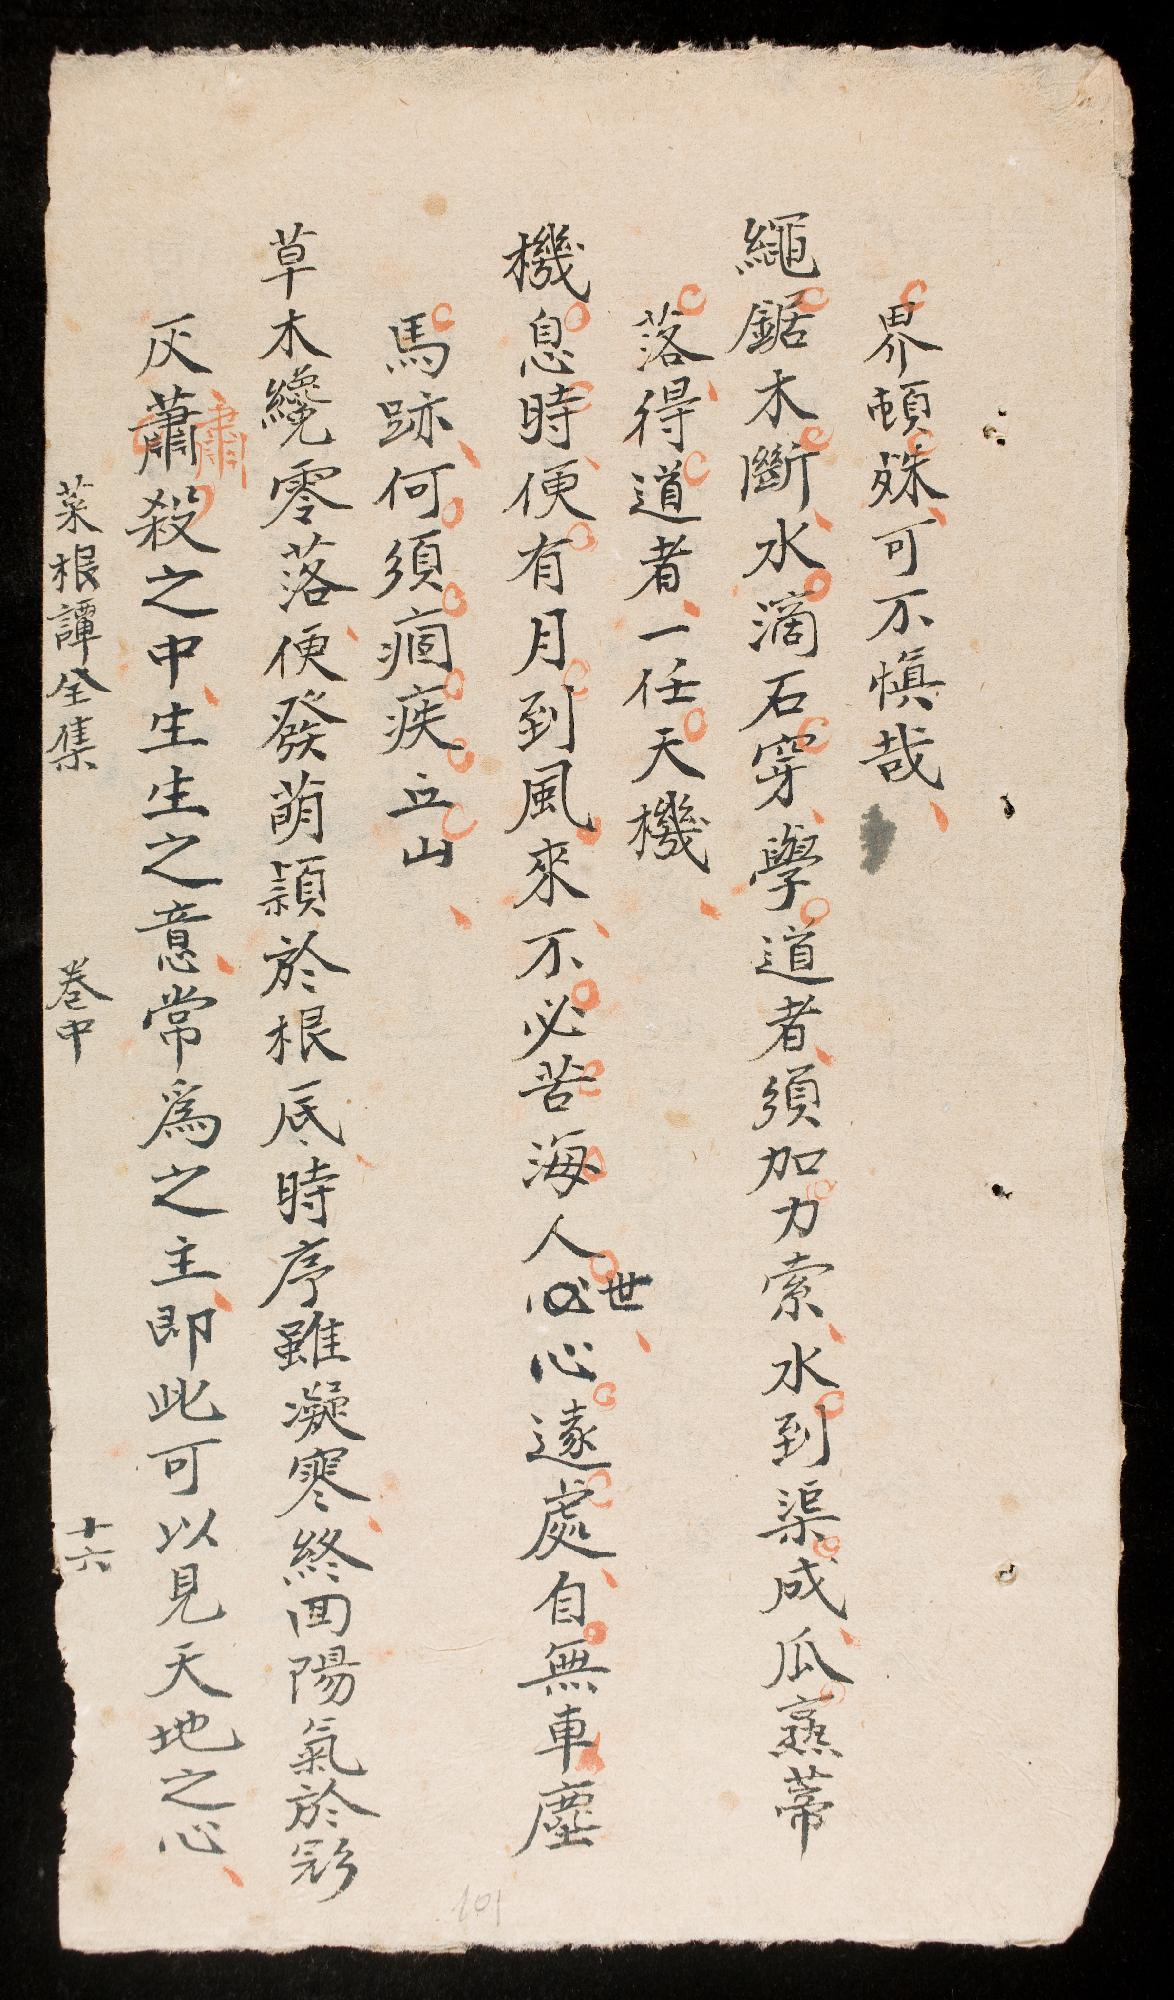 界頓殊可不慎哉
繩鋸木斷水滴石穿學道者須加力索水到渠成瓜熟蒂
落得道者一任天機
機息時便有月到風來不必苦海人世心遠處自無車塵
馬跡何須痼疾丘山
草木纔零落便發萌穎於根底時序雖凝寒終回陽氣於
灰蕭殺之中生生之意常為之主即此可以見天地之心
肅
菜根譚全集 卷中 十六
101